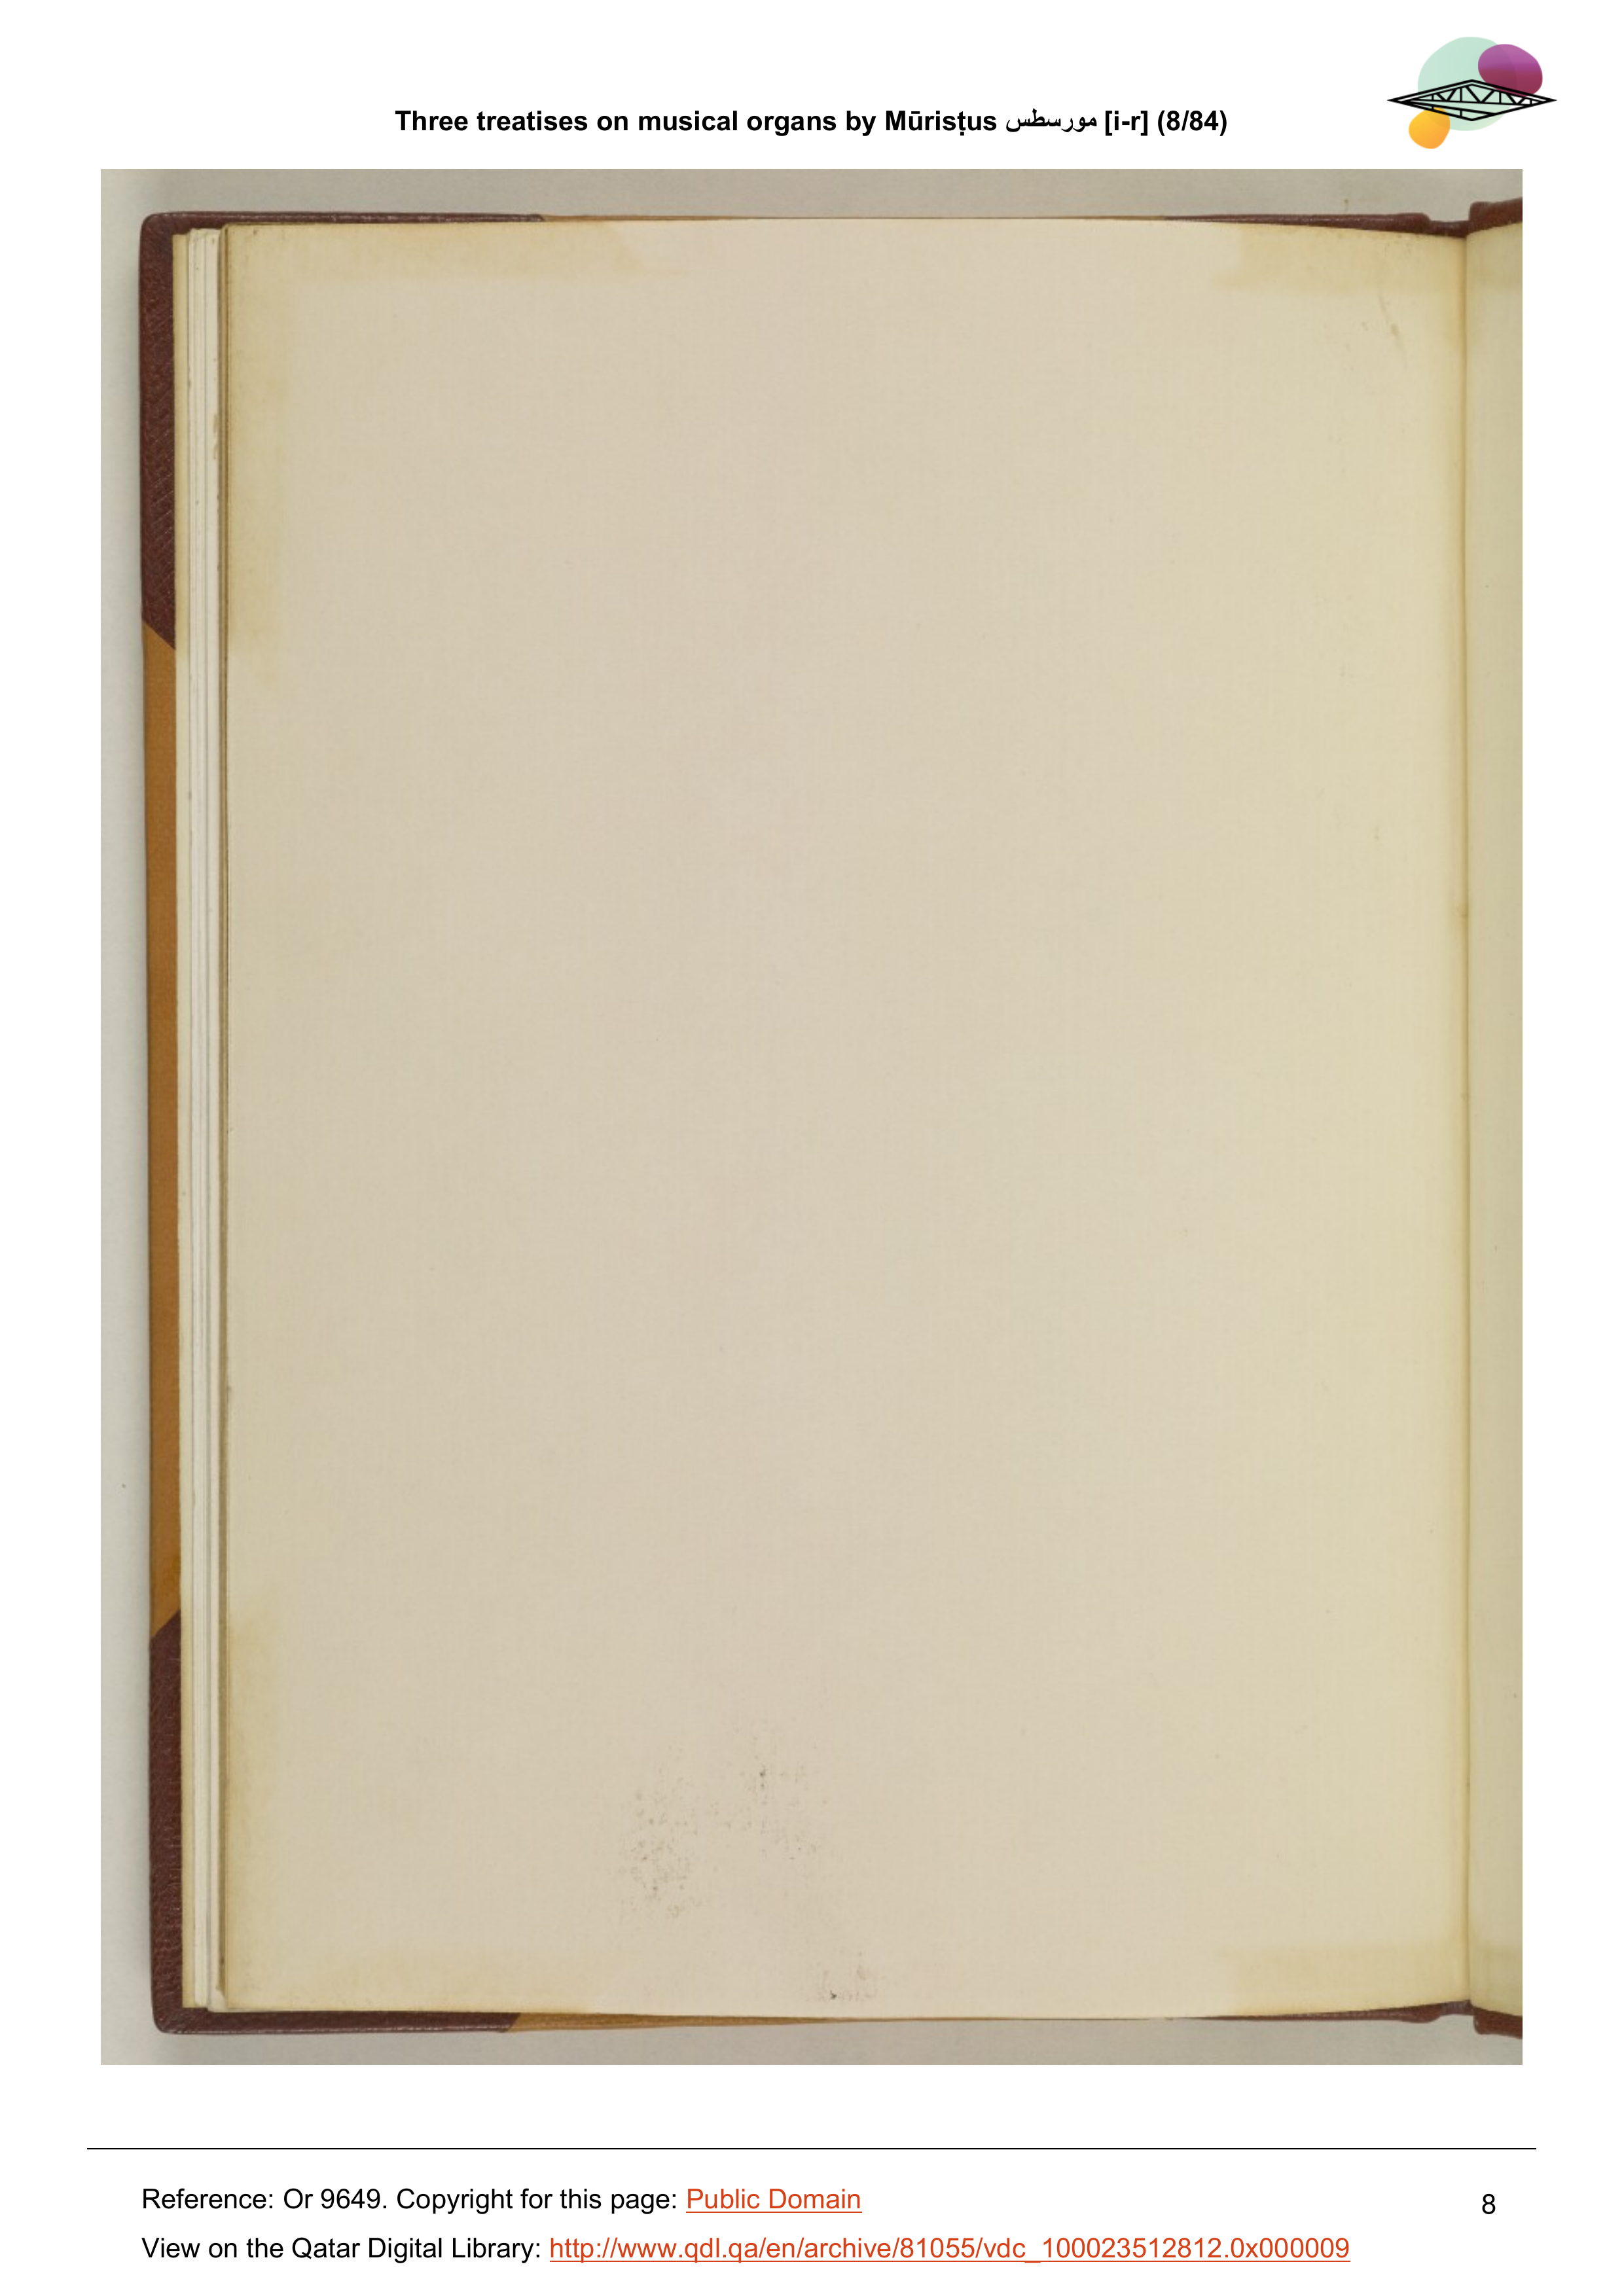 Three treatises on musical organs by Mūrisṭus مورسطس [i-r] (8/84)
Reference: Or 9649. Copyright for this page: Public Domain
8
View on the Qatar Digital Library: http://www.qdl.qa/en/archive/81055/vdc_100023512812.0x000009